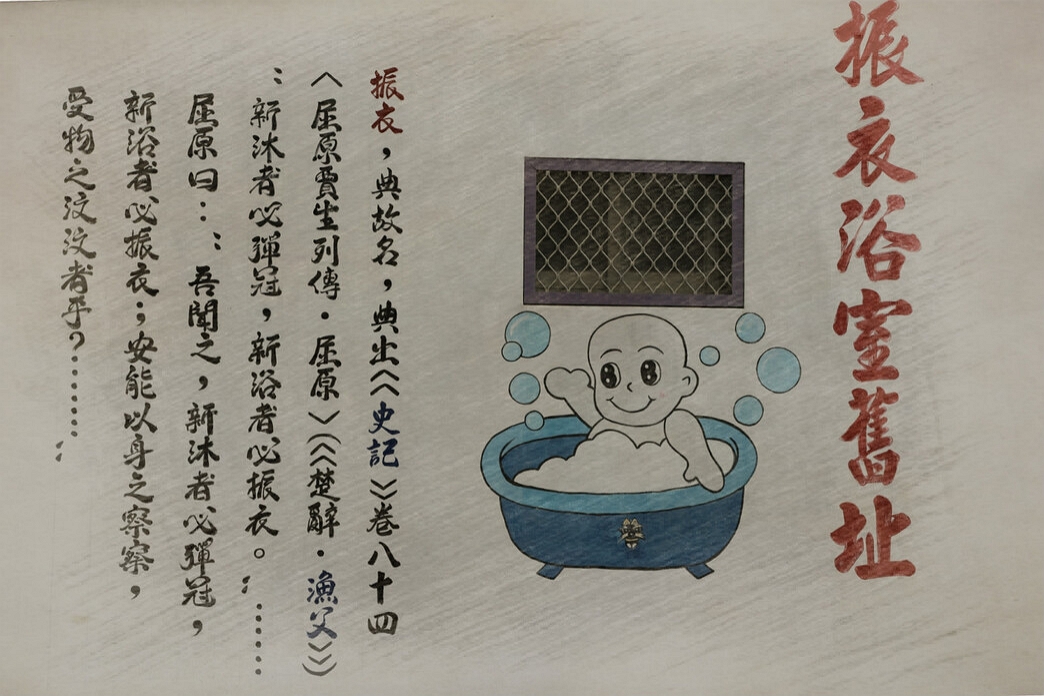 振衣浴室舊址
振衣,典故名,典出《史記》卷八十四
〈屈原賈生列傳.屈原〉《楚辭.漁父》
:新沐者必彈冠,新浴者必振衣。;⋯⋯
屈原曰:;吾聞之,新沐者必彈冠,
新浴者必振衣;安能以身之察察,
受物之汶汶者乎?⋯⋯;